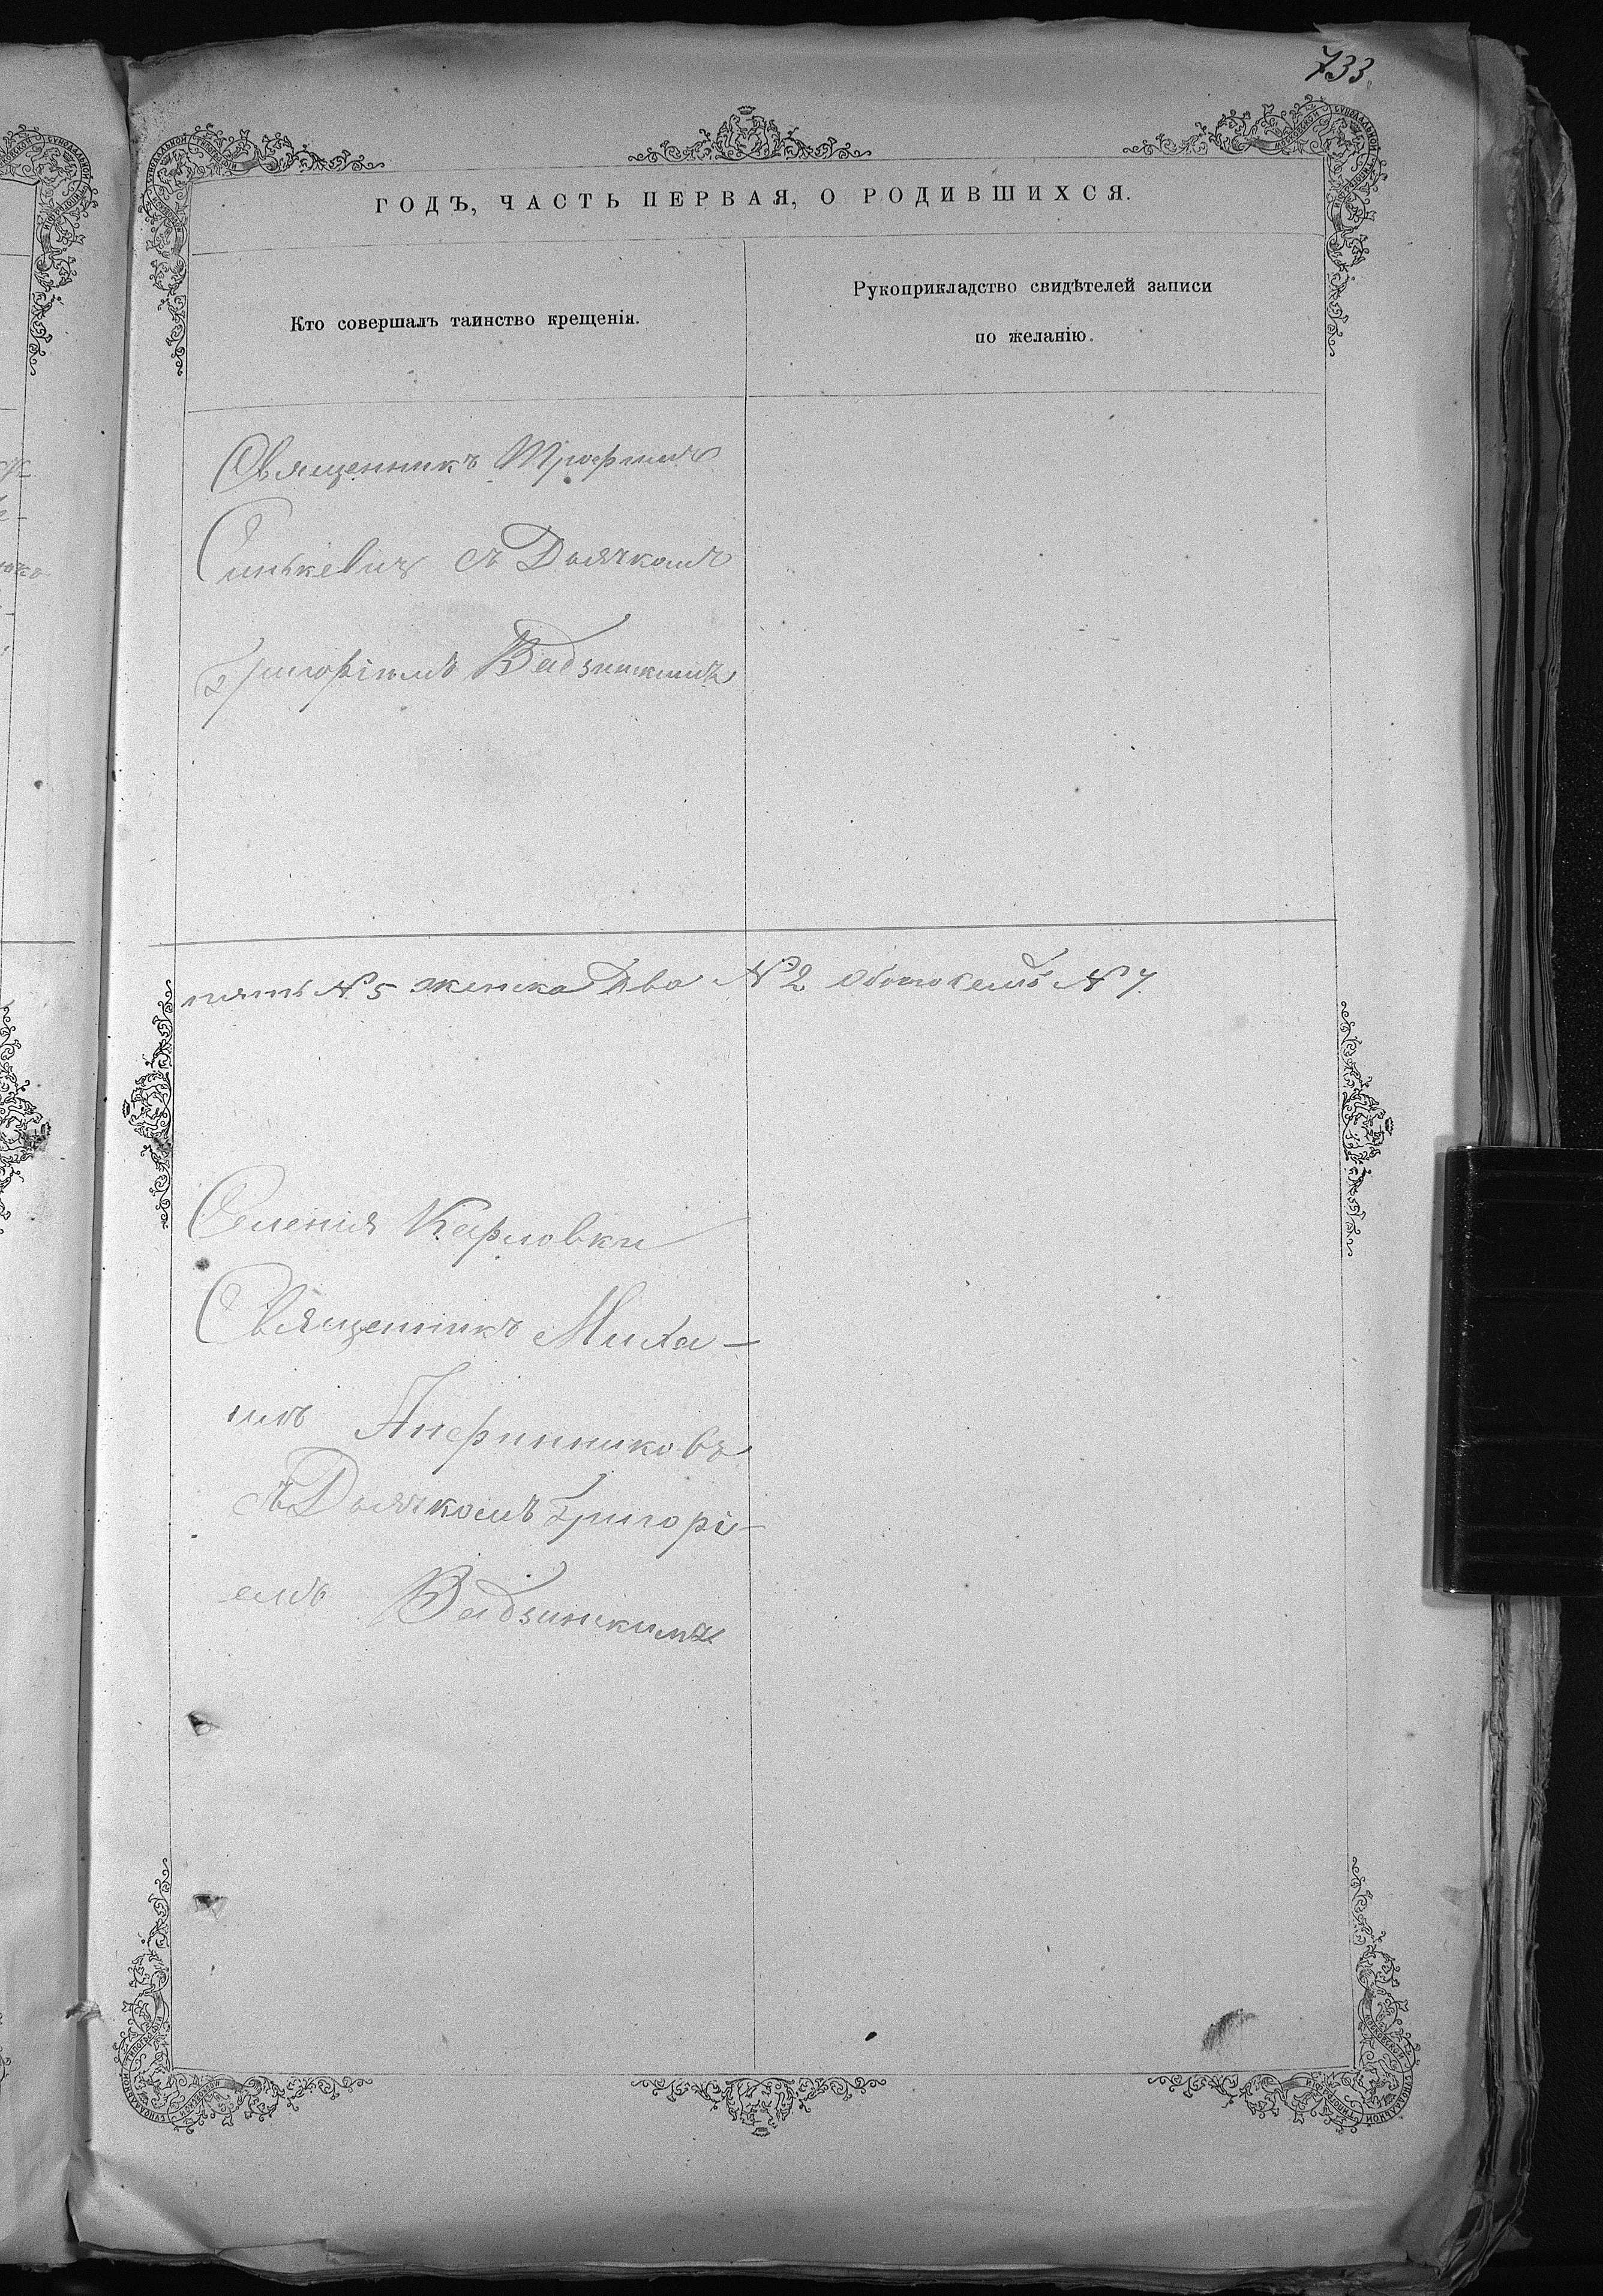 733.
ГОДЪ, ЧАСТЬ ПЕРВАЯ, О РОДИВШИХСЯ.
Кто совершалъ таинство крещенія.
Рукоприкладство свидѣтелей записи
по желанію.
Священникъ Трофимъ
Синькевичъ съ Дьячкомъ
Григоріемъ Вадзинскимъ
пять № 5 женска два № 2 обоего семь № 7.
Селенія Карловки
Священникъ Миха-
илъ
съ Дьячкомъ Григорі-
емъ Вадзинскимъ